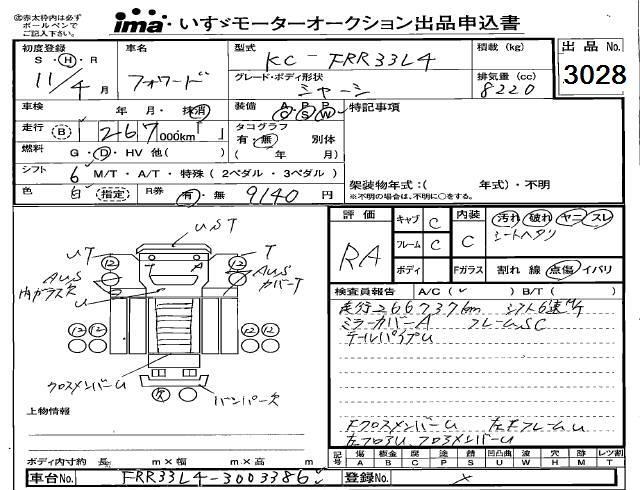 ※赤太枠内は必ず
ボールペンで
ご記入下さい。
ima いすゞモーターオークション出品申込書
初度登録 車名 型式 積載 (kg) 出品No.
S・H・ KC-FRR33L4
11/4月 フォワード グレード・ボディ形状 排気量 (cc) 3028
シャーシ 8220
車検 年 月・抹消 装備 A/C P/S P/W 特記事項
走行 B 267,000km タコグラフ
有・無 別体
燃料 G・D・HV 他( ) ( 年 月)
シフト 6 M/T・A/T・特殊 (2ペダル・3ペダル) 架装物年式:( 年式)・不明
色 白 (指定) R券 有・無 9140円 ※不明の場合は、不明に○をする。
評価 キャブ C 内装 汚れ 破れ ヤニ スレ
RA フレーム C C シートヘタリ
ボディ Fガラス 割れ 線 点傷 イバリ
UST
UT T
AUS AUS
内ガラス欠 U カバーT
A
12 12
12 12
12 12 12 12
クロスメンバーU
欠 バンパー欠
上物情報
検査員報告 A/C(✓) B/T( )
走行266737km シフト6速M/T
ミラーカバーA フレームSC
テールパイプU
FクロスメンバーU 左FフレームU
左フロアU、フロアメンバーU
記号 傷 板金 腐 塗 錆 凹凸曲 波 穴 跡 レツ割
A B C P S U W H M T
ボディ内寸約 長 m×幅 m×高 m
車台No. FRR33L4-3003386 登録No. ×